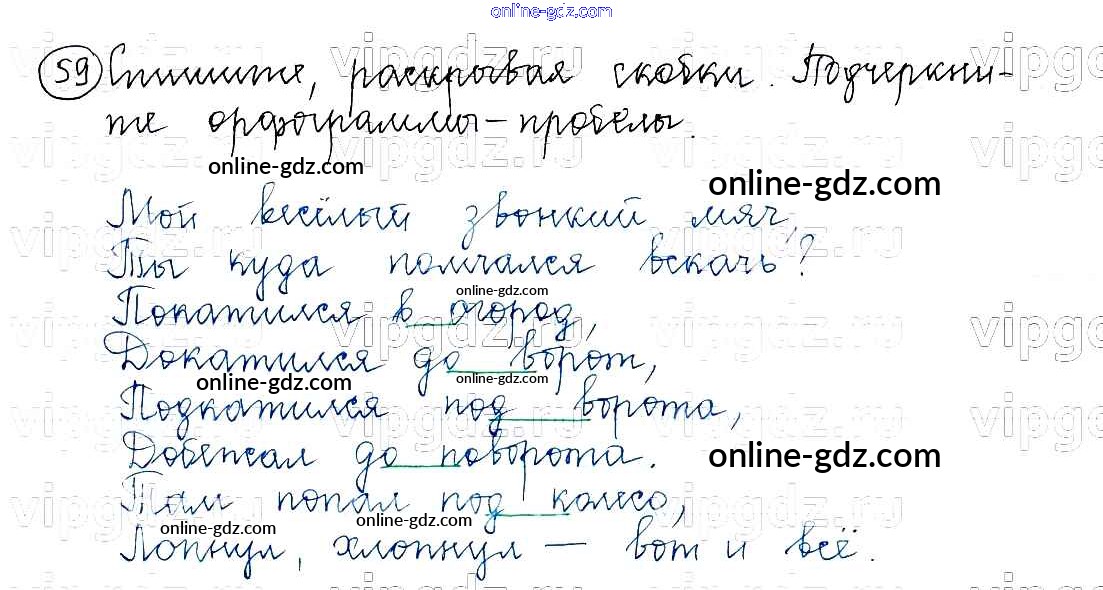 online-gdz.com
59 Спишите, раскрывая скобки. Подчеркни-
те орфограммы-пробелы.
online-gdz.com
online-gdz.com
Мой весёлый звонкий мяч,
Ты куда помчался вскачь?
online-gdz.com
Покатился в огород,
Докатился до ворот,
online-gdz.com
online-gdz.com
Подкатился под ворота,
Добежал до поворота.
online-gdz.com
Там попал под колесо,
online-gdz.com
online-gdz.com
Лопнул, хлопнул – вот и всё.
vipgdz.ru